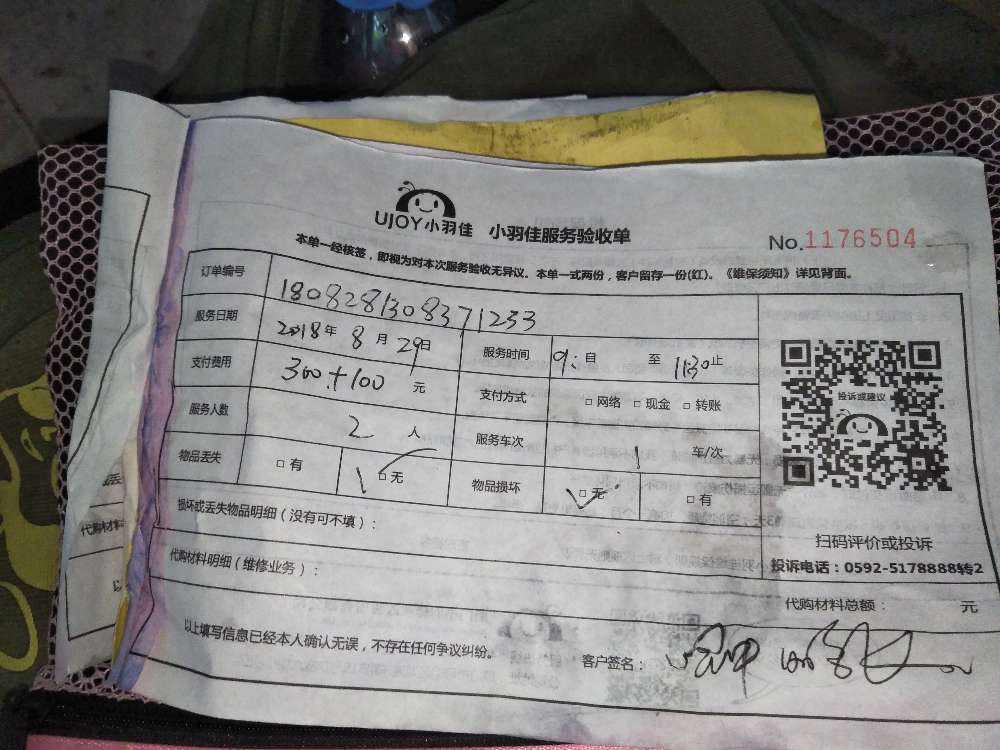 UJOY小羽佳 小羽佳服务验收单
No.1176504
本单一经核签，即视为对本次服务验收无异议。本单一式两份，客户留存一份(红)。《维保须知》详见背面。
订单编号 18082813083 71233
服务日期 2018年 8月 29日 服务时间 9: 自 至 1130止
支付费用 300+100 元 支付方式 □ 网络 □ 现金 □ 转账
服务人数 2 人 服务车次 1 车/次
物品丢失 □ 有 □ 无 物品损坏 □ 无 □ 有
投诉或建议
损坏或丢失物品明细（没有可不填）：
扫码评价或投诉
代购材料明细（维修业务）：
投诉电话：0592-5178888转2
代购材料总额： 元
以上填写信息已经本人确认无误，不存在任何争议纠纷。 客户签名：
代购材料